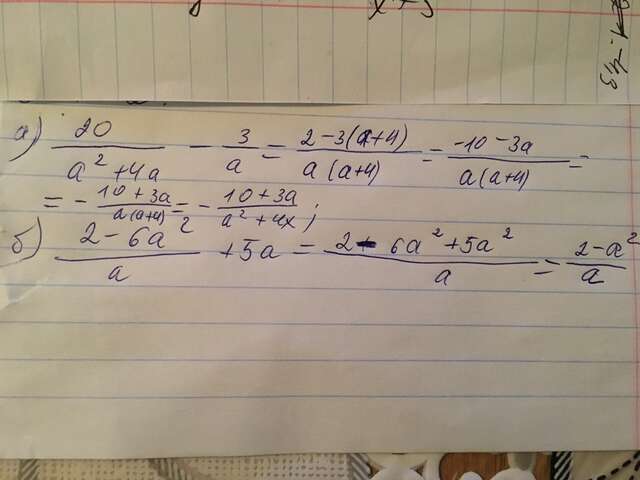 а) 20/(a² + 4a) - 3/a = (2-3(a+4))/(a(a+4)) = (-10-3a)/(a(a+4)) =
= - (10+3a)/(a(a+4)) = - (10+3a)/(a²+4x);
б) (2-6a²)/a + 5a = (2-6a²+5a²)/a = (2-a²)/a